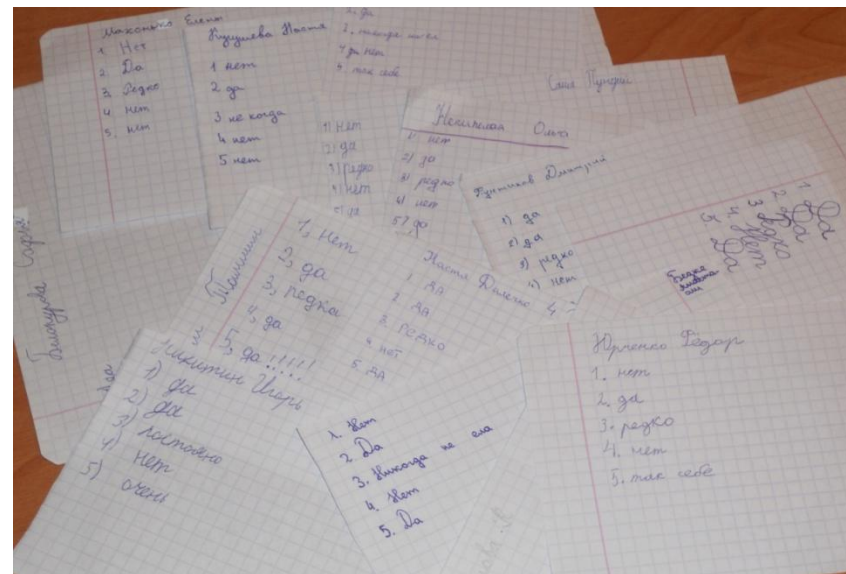 Махонько Елена
1. Нет
2. Да
3. Редко
4. нет
5. нет
Настя
1 нет
2 да
3 не когда
4 нет
5 нет
2. да
4 да нет
5. так себе
Саша
1) нет
2) да
3) редко
4) нет
5) да
Ольга
1) нет
2) да
3) редко!
4) нет
5) да
Дмитрий
1) да
2) да
3) редко
4) нет
1 Да
2 Да
3 Редко
4 Нет
5 Да
1, нет
2, да
3, редка
4, да
5, да!!!!!
Настя
1. ДА
2. ДА
3. РЕДКО
4. НЕТ
5. ДА
Никитин Игорь
1) да
2) да
3) постояно
4) нет
5) очень
1. Нет
2. Да
3. Никогда не ела
4. Нет
5. Да
Юрченко Фёдор
1. нет
2. да
3. редко
4. нет
5. так себе